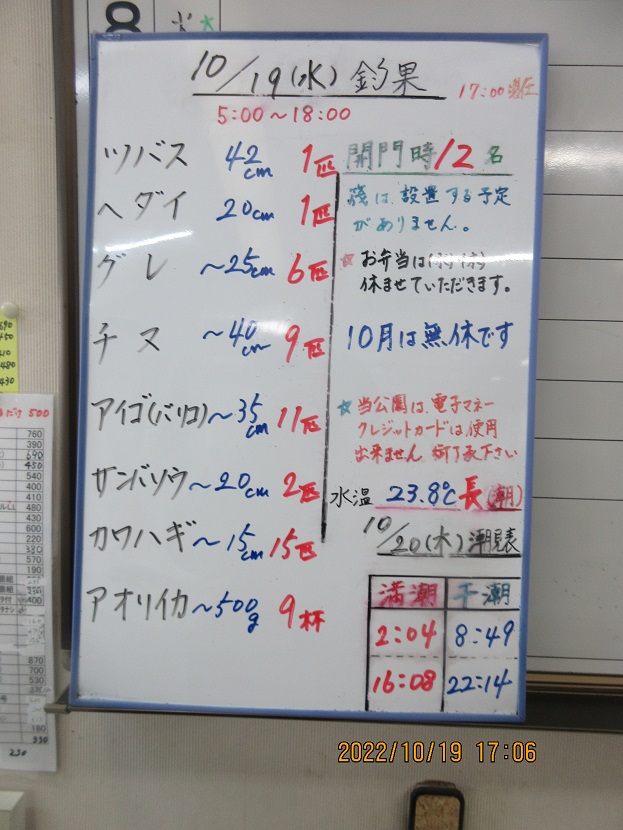 10/19(水) 釣果
17:00現在
5:00～18:00
ツバス 42cm 1匹
ヘダイ 20cm 1匹
グレ ～25cm 6匹
チヌ ～40cm 9匹
アイゴ(バリコ) ～35cm 11匹
サンバソウ ～20cm 2匹
カワハギ ～15cm 15匹
アオリイカ ～500g 9杯
開門時12名
は、設置する予定
がありません。
☆お弁当は
休ませていただきます。
10月は無休です
☆当公園は、電子マネー
クレジットカードは使用
出来ません 御了承下さい
水温 23.8℃ 長(潮)
10/20(木)潮見表
満潮 干潮
2:04 8:49
16:08 22:14
2022/10/19 17:06
8
水
500
760
390
690
450
540
400
410
480
530
600
220
380
570
190
400
870
700
530
180
330
230